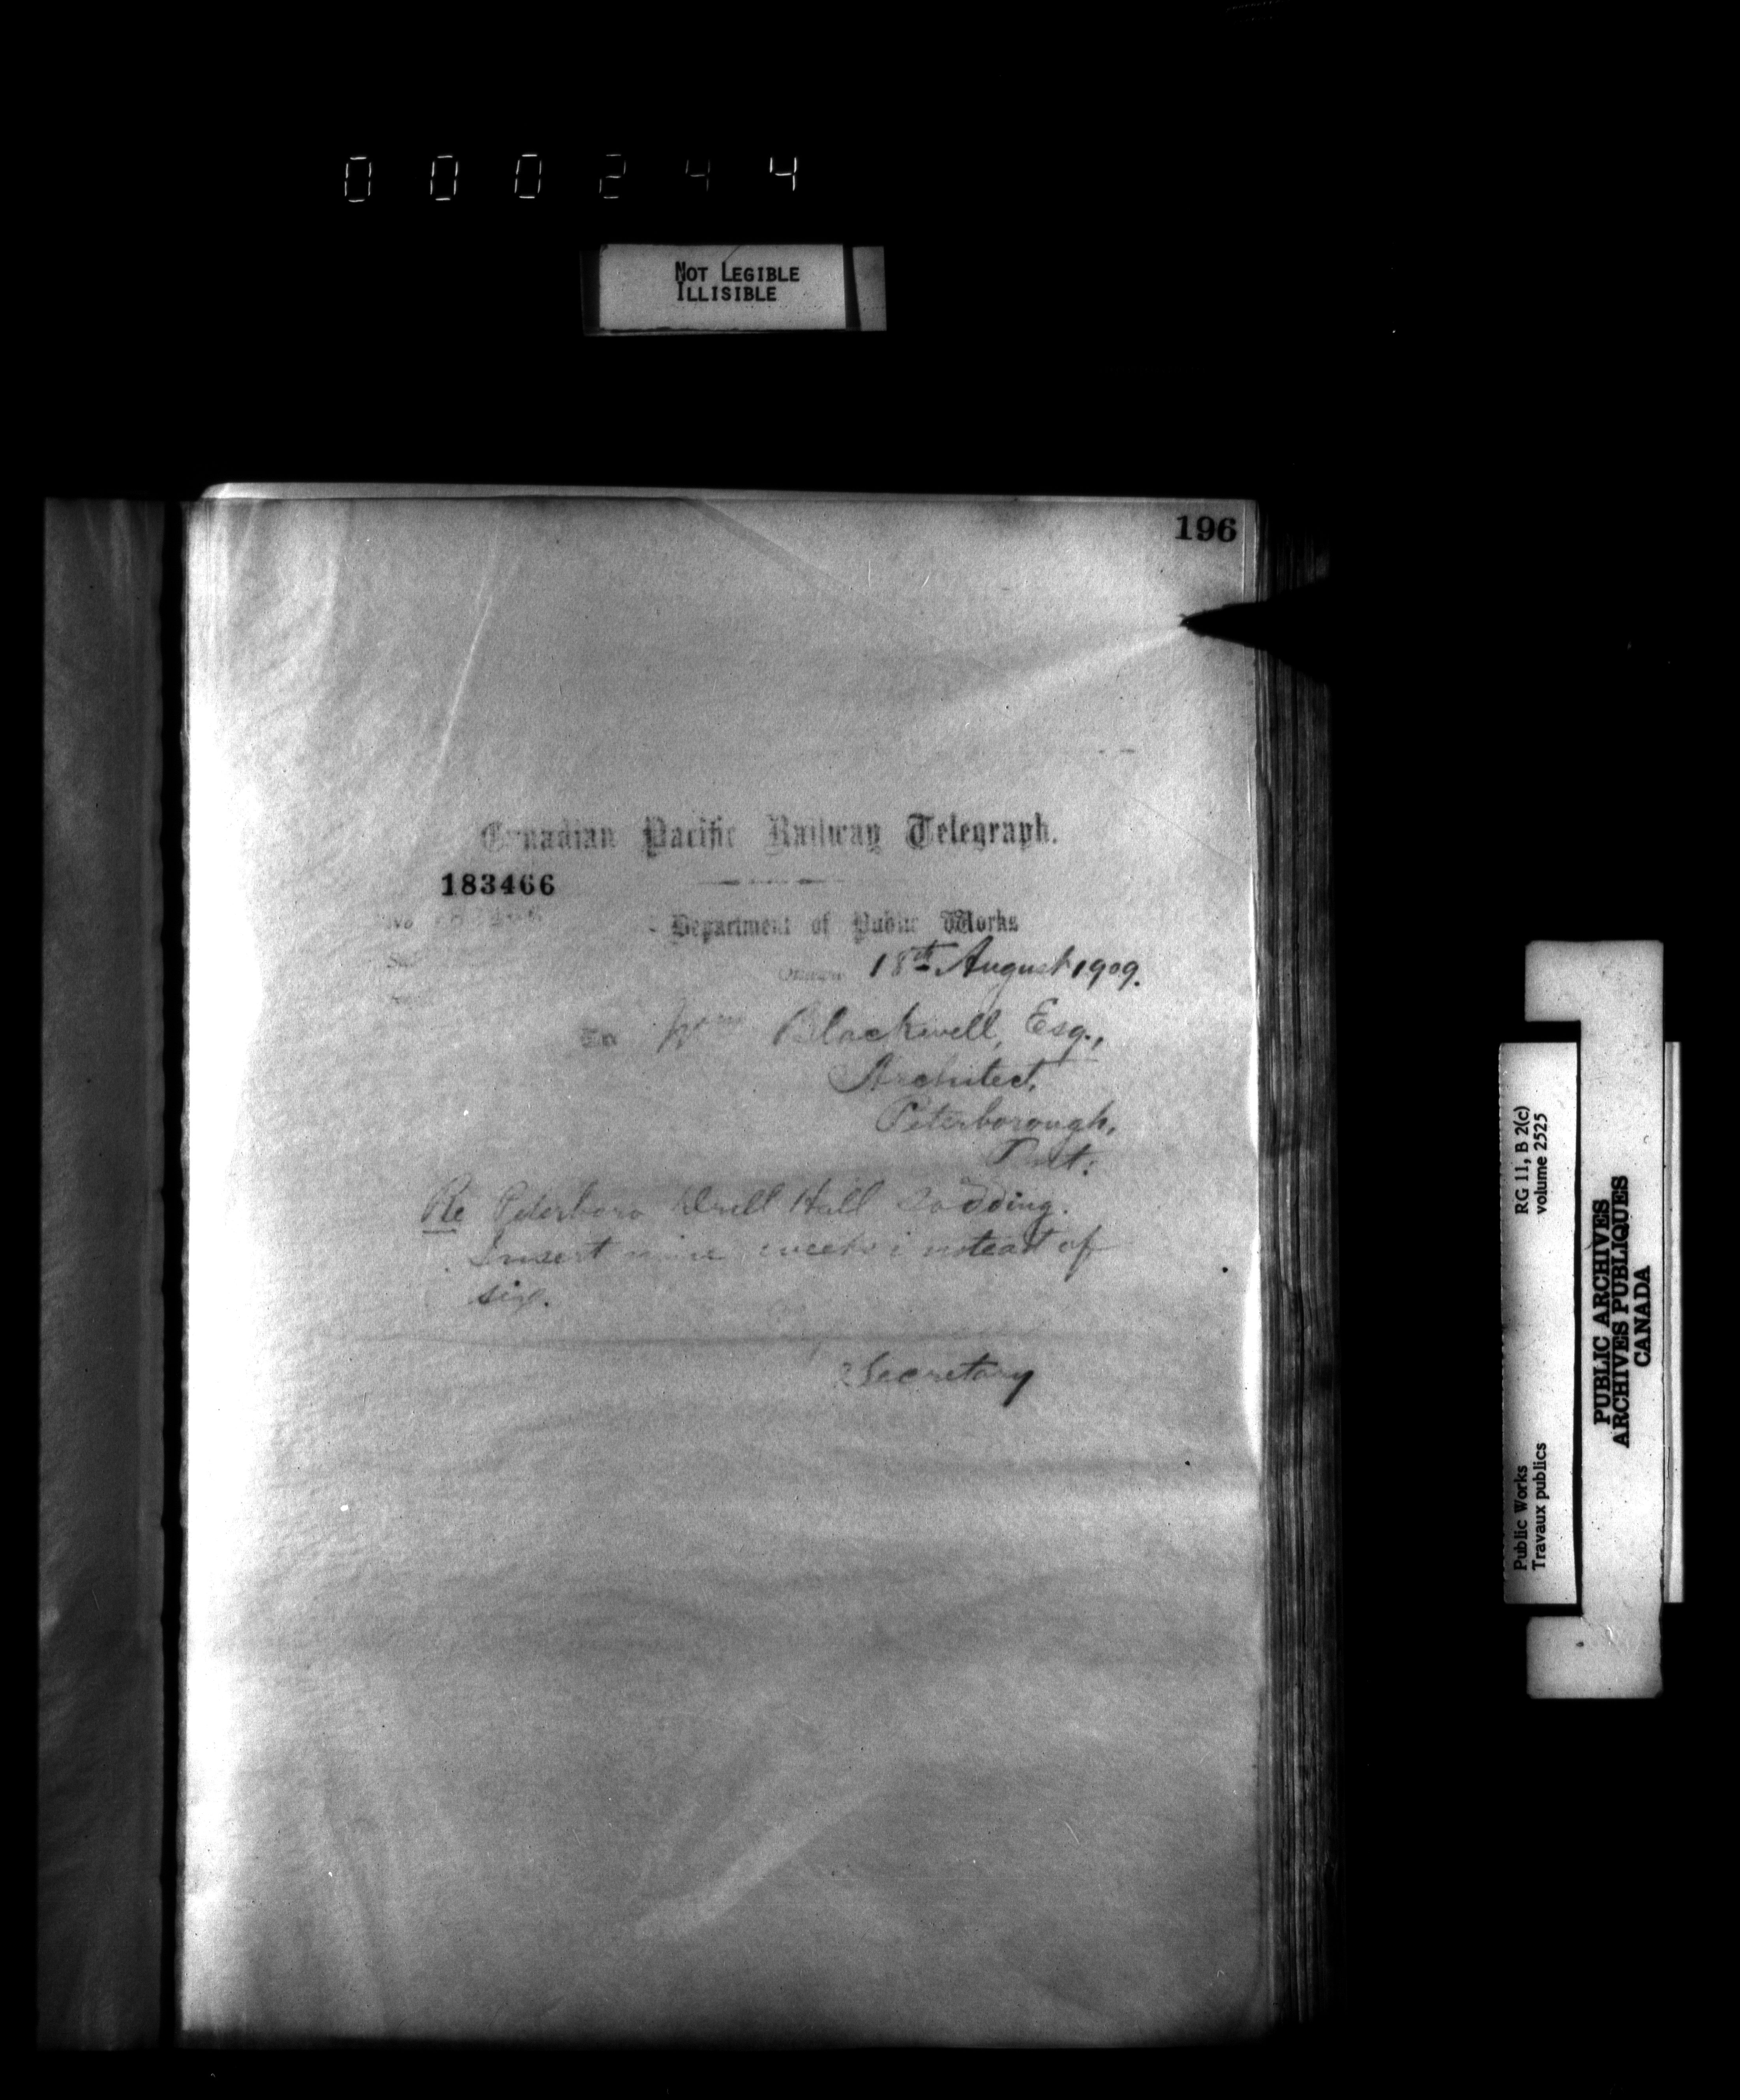 000244
NOT LEGIBLE
ILLISIBLE
196
Canadian Pacific Railway Telegraph.
183466
No
Department of Public Works
Ottawa 18th August 1909.
To Wm Blackwell, Esq.,
Architect,
Peterborough,
Ont.
Re Peterboro Drill Hall Sodding.
Insert nine weeks instead of
six.
Secretary
Public Works
Travaux publics
RG 11, B 2(c)
volume 2525
PUBLIC ARCHIVES
ARCHIVES PUBLIQUES
CANADA